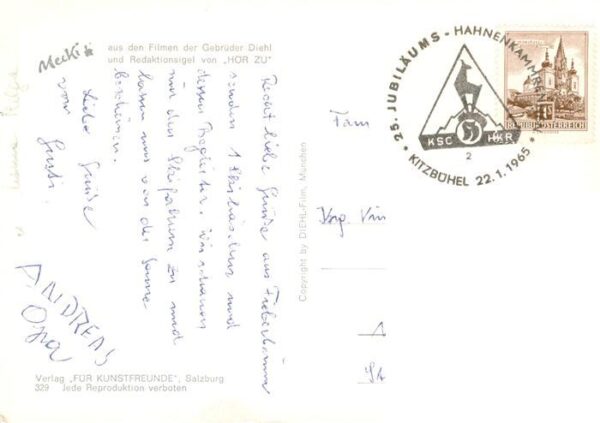 Mecki
aus den Filmen der Gebrüder Diehl
und Redaktionsigel von „HÖR ZU"
Recht liebe Grüße aus Fieberbrunn
senden 1 Skihäschen und
dessen Begleiter. Wir schauen
nur den Skifahrern zu und
lassen uns von der Sonne
bescheinen.
Liebe Grüße
von
Gusti
ANDREAS
Opa
Verlag „FÜR KUNSTFREUNDE", Salzburg
329 Jede Reproduktion verboten
Copyright by DIEHL-Film, München
25. JUBILÄUMS - HAHNENKAMMRENNEN
KSC HKR
2
KITZBÜHEL 22.1.1965
1S
REPUBLIK ÖSTERREICH
Fam